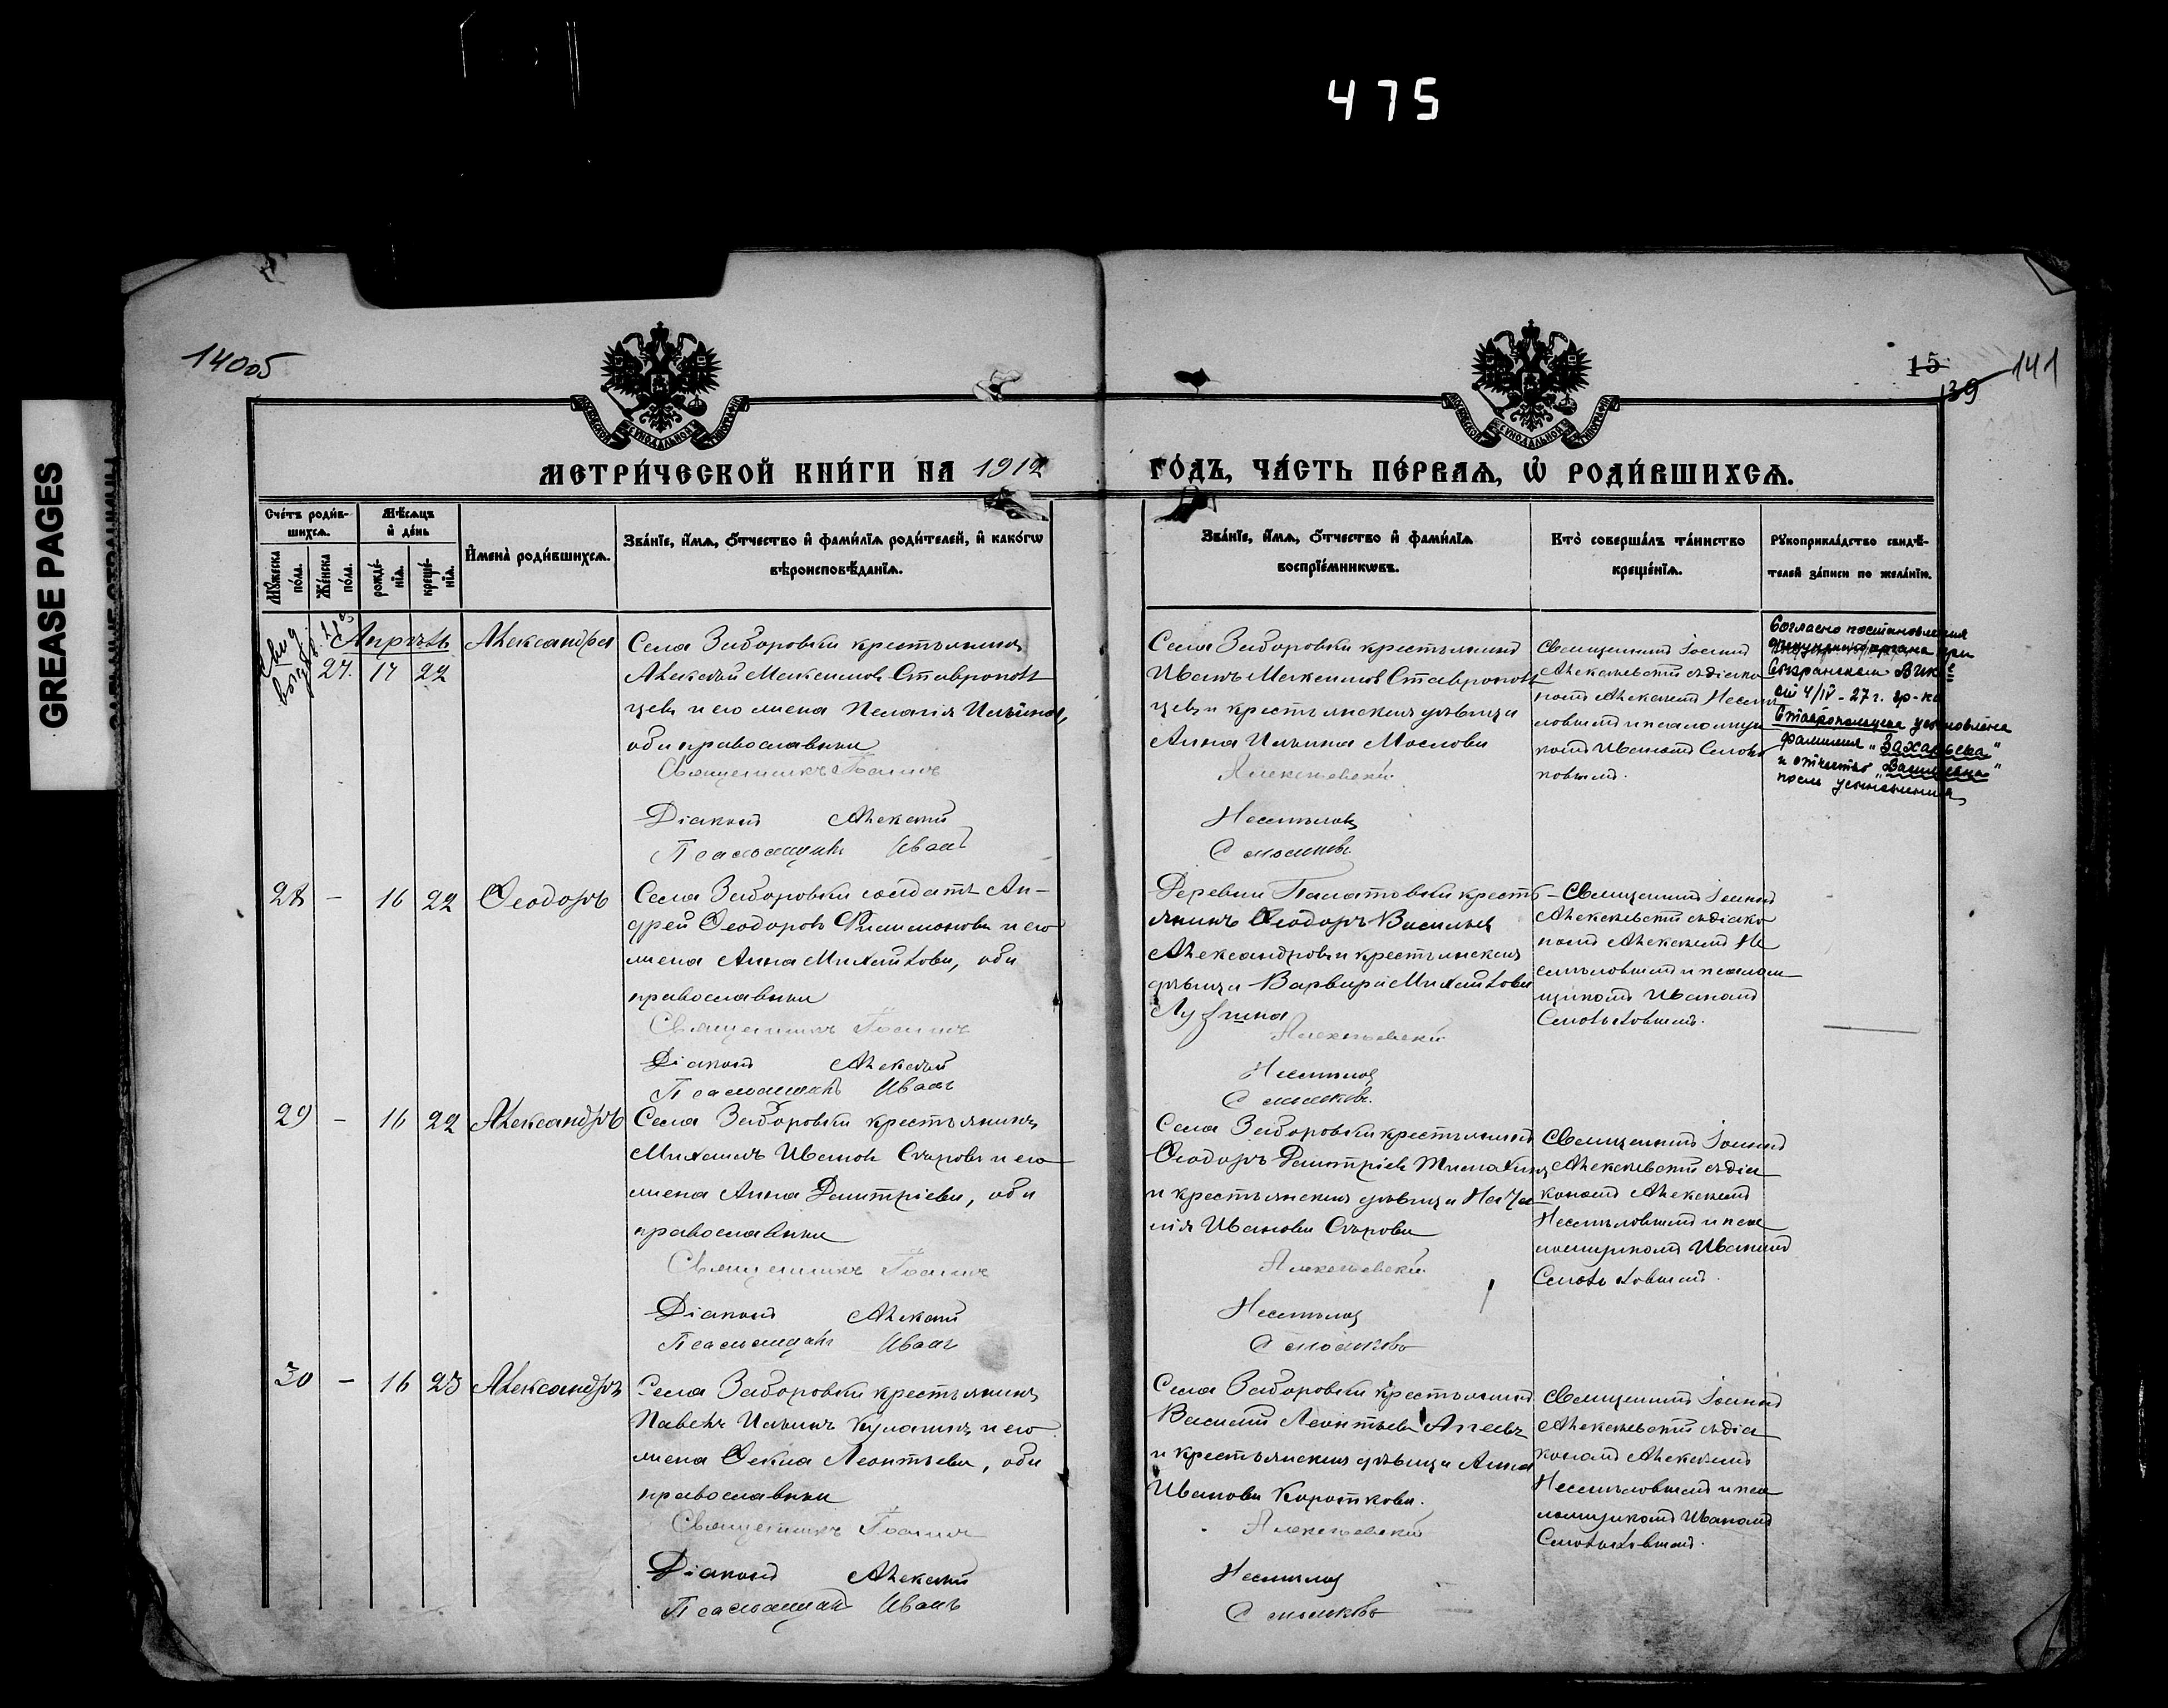 475
GREASE PAGES
140об
15
139
141
МЕТРИ́ЧЕСКОЙ КНИ́ГИ НА 1912
ГО́ДЪ, ЧА́СТЬ ПЕ́РВАѦ, Ѡ҆ РОДИ́ВШИХСѦ.
Сче́тъ роди́в-
шихсѧ.
Мꙋ́жеска по́ла.
Же́нска по́ла.
Мѣ́сѧцъ
и҆ де́нь
рожде́-нїѧ.
креще́-нїѧ.
И҆мена̀ роди́вшихсѧ.
Зва́нїе, и҆́мѧ, ѻ҆́тчество и҆ фами́лїѧ роди́телей, и҆ како́гѡ
вѣроисповѣ́данїѧ.
Зва́нїе, и҆́мѧ, ѻ҆́тчество и҆ фами́лїѧ
воспрїе́мникѡвъ.
Кто̀ соверша́лъ та́инство
креще́нїѧ.
Рꙋкоприкла́дство свидѣ́-
телей за́писи по жела́нїю.
Апрѣль
27. 17 22
Александра
Села Заборовки крестьянинъ
Алексѣй Максимовъ Ставрополь
цевъ и его жена Пелагія Ильина,
оба православные
Священникъ Іоаннъ
Діаконъ Алексѣй
Псаломщикъ Иванъ
Села Заборовки крестьянинъ
Иванъ Максимовъ Ставрополь
цевъ и крестьянская дѣвица
Анна Ильина Маслова
Алексѣевскій
Несмѣловъ
Смольковъ
Священникъ Іоаннъ
Алексѣевскій съ діако
номъ Алексѣемъ Несмѣ
ловымъ и псаломщи
комъ Иваномъ Смоль
ковымъ.
Согласно постановления
при
Сызранском ВИКе
от 4/IV-27 г. гр-ке
Ставропольцевой установлена
фамилия „Захарьева"
и отчество „Васильевна"
после усыновления
28 — 16 22
Ѳеодоръ
Села Заборовки солдатъ Ан-
дрей Ѳеодоровъ Филимоновъ и его
жена Анна Михайлова, оба
православные
Священникъ Іоаннъ
Діаконъ Алексѣй
Псаломщикъ Иванъ
Деревни Памятовки кресть
янинъ Ѳеодоръ Васильевъ
Александровъ и крестьянская
дѣвица Варвара Михайлова
Алексѣевскій
Несмѣловъ
Смольковъ.
Священникъ Іоаннъ
Алексѣевскій съ діако
номъ Алексѣемъ Не
смѣловымъ и псалом
щикомъ Иваномъ
Смольковымъ.
29 — 16 22
Александръ
Села Заборовки крестьянинъ
Михаилъ Ивановъ Сѣровъ и его
жена Анна Дмитріева, оба
православные
Священникъ Іоаннъ
Діаконъ Алексѣй
Псаломщикъ Иванъ
Села Заборовки крестьянинъ
Ѳеодоръ Дмитріевъ
и крестьянская дѣвица Ната
лія Иванова Сѣрова
Алексѣевскій
Несмѣловъ
Смольковъ
Священникъ Іоаннъ
Алексѣевскій съ діа
кономъ Алексѣемъ
Несмѣловымъ и пса
ломщикомъ Иваномъ
Смольковымъ.
30 — 16 23
Александръ
Села Заборовки крестьянинъ
Павелъ Ильинъ Кулагинъ и его
жена Ѳекла Леонтьева, оба
православные
Священникъ Іоаннъ
Діаконъ Алексѣй
Псаломщикъ Иванъ
Села Заборовки крестьянинъ
Василій Леонтьевъ Агеевъ
и крестьянская дѣвица Анна
Иванова Короткова.
Алексѣевскій
Несмѣловъ
Смольковъ
Священникъ Іоаннъ
Алексѣевскій съ діа
кономъ Алексѣемъ
Несмѣловымъ и пса
ломщикомъ Иваномъ
Смольковымъ.